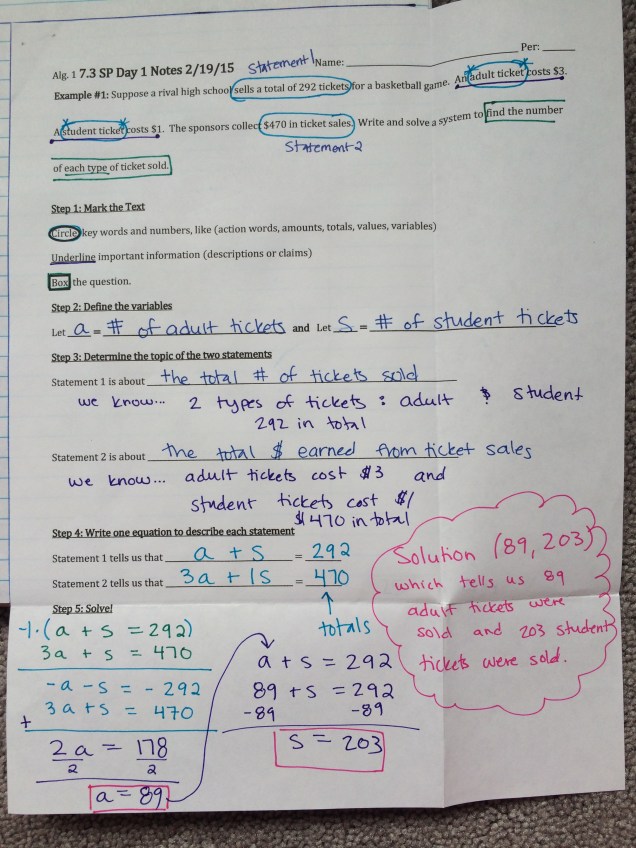 Alg. 1 7.3 SP Day 1 Notes 2/19/15 Statement 1 Name: ____ Per: ____
Example #1: Suppose a rival high school sells a total of 292 tickets for a basketball game. An adult ticket costs $3.
A student ticket costs $1. The sponsors collect $470 in ticket sales. Write and solve a system to find the number
Statement 2
of each type of ticket sold.
Step 1: Mark the Text
Circle key words and numbers, like (action words, amounts, totals, values, variables)
Underline important information (descriptions or claims)
Box the question.
Step 2: Define the variables
Let a = # of adult tickets and Let s = # of student tickets
Step 3: Determine the topic of the two statements
Statement 1 is about the total # of tickets sold
we know... 2 types of tickets : adult & student
292 in total
Statement 2 is about the total $ earned from ticket sales
we know... adult tickets cost $3 and
student tickets cost $1
$470 in total
Step 4: Write one equation to describe each statement
Statement 1 tells us that a + s = 292
Statement 2 tells us that 3a + 1s = 470
totals
Step 5: Solve!
-1·(a + s = 292)
3a + s = 470
-a - s = - 292
+ 3a + s = 470
2a = 178
2 2
a = 89
a + s = 292
89 + s = 292
-89 -89
s = 203
Solution (89, 203)
which tells us 89
adult tickets were
sold and 203 student
tickets were sold.